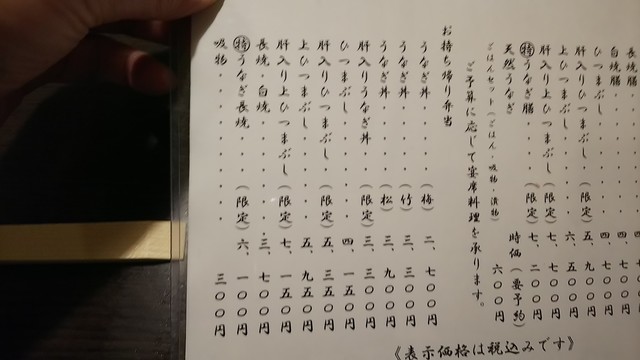 長焼膳・・・・四
白焼膳・・・・四、七〇〇円
ひつまぶし・・・・四、七〇〇円
肝入りひつまぶし・・(限定)五、九〇〇円
上ひつまぶし・・・・六、五〇〇円
肝入り上ひつまぶし(限定)七、七〇〇円
㊕うなぎ膳・・・(限定)七、二〇〇円
天然うなぎ 時価(要予約)
ごはんセット(ごはん・吸物・漬物) 六〇〇円
ご予算に応じて宴席料理を承ります。
お持ち帰り弁当
うなぎ丼・・・・(梅)二、七〇〇円
うなぎ丼・・・・(竹)三、三〇〇円
うなぎ丼・・・・(松)三、九〇〇円
肝入りうなぎ丼・・(限定)三、三〇〇円
ひつまぶし・・・・四、一五〇円
肝入りひつまぶし・(限定)五、三五〇円
上ひつまぶし・・・・五、九五〇円
肝入り上ひつまぶし(限定)七、一五〇円
長焼・白焼・・・・三、七〇〇円
㊕うなぎ長焼・・・(限定)六、一〇〇円
吸物・・・・・・・三〇〇円
《表示価格は税込みです》